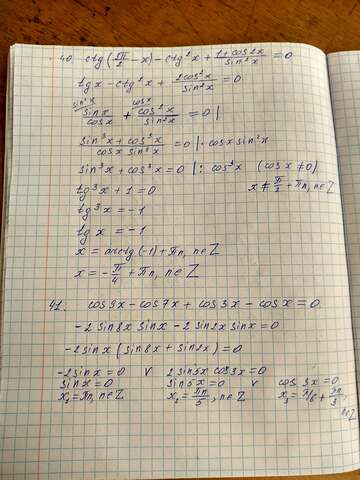 40. ctg(3π/2 - x) - ctg²x + (1+cos2x)/(sin²x) = 0
tgx - ctg²x + (2cos²x)/(sin²x) = 0
(sinx)/(cosx) + (cos²x)/(sin²x) = 0 |
(sin³x + cos³x)/(cosx sin²x) = 0 | · cosx sin²x
sin³x + cos³x = 0 | : cos³x (cosx ≠ 0)
tg³x + 1 = 0 x ≠ π/2 + πn, n∈Z
tg³x = -1
tgx = -1
x = arctg(-1) + πn, n∈Z
x = -π/4 + πn, n∈Z
41. cos9x - cos7x + cos3x - cosx = 0
-2sin8x sinx - 2sin2x sinx = 0
-2sinx (sin8x + sin2x) = 0
-2sinx = 0 v 2sin5x cos3x = 0
sinx = 0 sin5x = 0 v cos3x = 0
x₁ = πn, n∈Z x₂ = πn/5, n∈Z x₃ = π/6 + πn/3, n∈Z